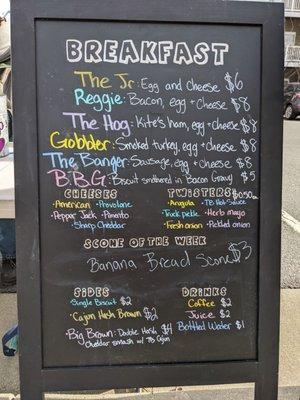 BREAKFAST
The Jr: Egg and cheese $6
Reggie: Bacon, egg + cheese $8
The Hog: Kite's ham, egg + cheese $8
Gobbler: Smoked turkey, egg + cheese $8
The Banger: Sausage, egg + cheese $8
B.B.G: Biscuit smothered in Bacon Gravy $5
CHEESES
•American •Provolone
•Pepper Jack •Pimento
•Sharp Cheddar
TWISTERS $0.50 ea.
•Arugula •TB Hot Sauce
•Tuck pickle •Herb mayo
•Fresh onion •Pickled onion
SCONE OF THE WEEK
Banana Bread Scone $3
SIDES
Single Biscuit $2
•Cajun Hash Brown $2
•Big Brown: Double Hash $4
Cheddar smash w/ TB Cajun
DRINKS
Coffee $2
Juice $2
Bottled Water $1